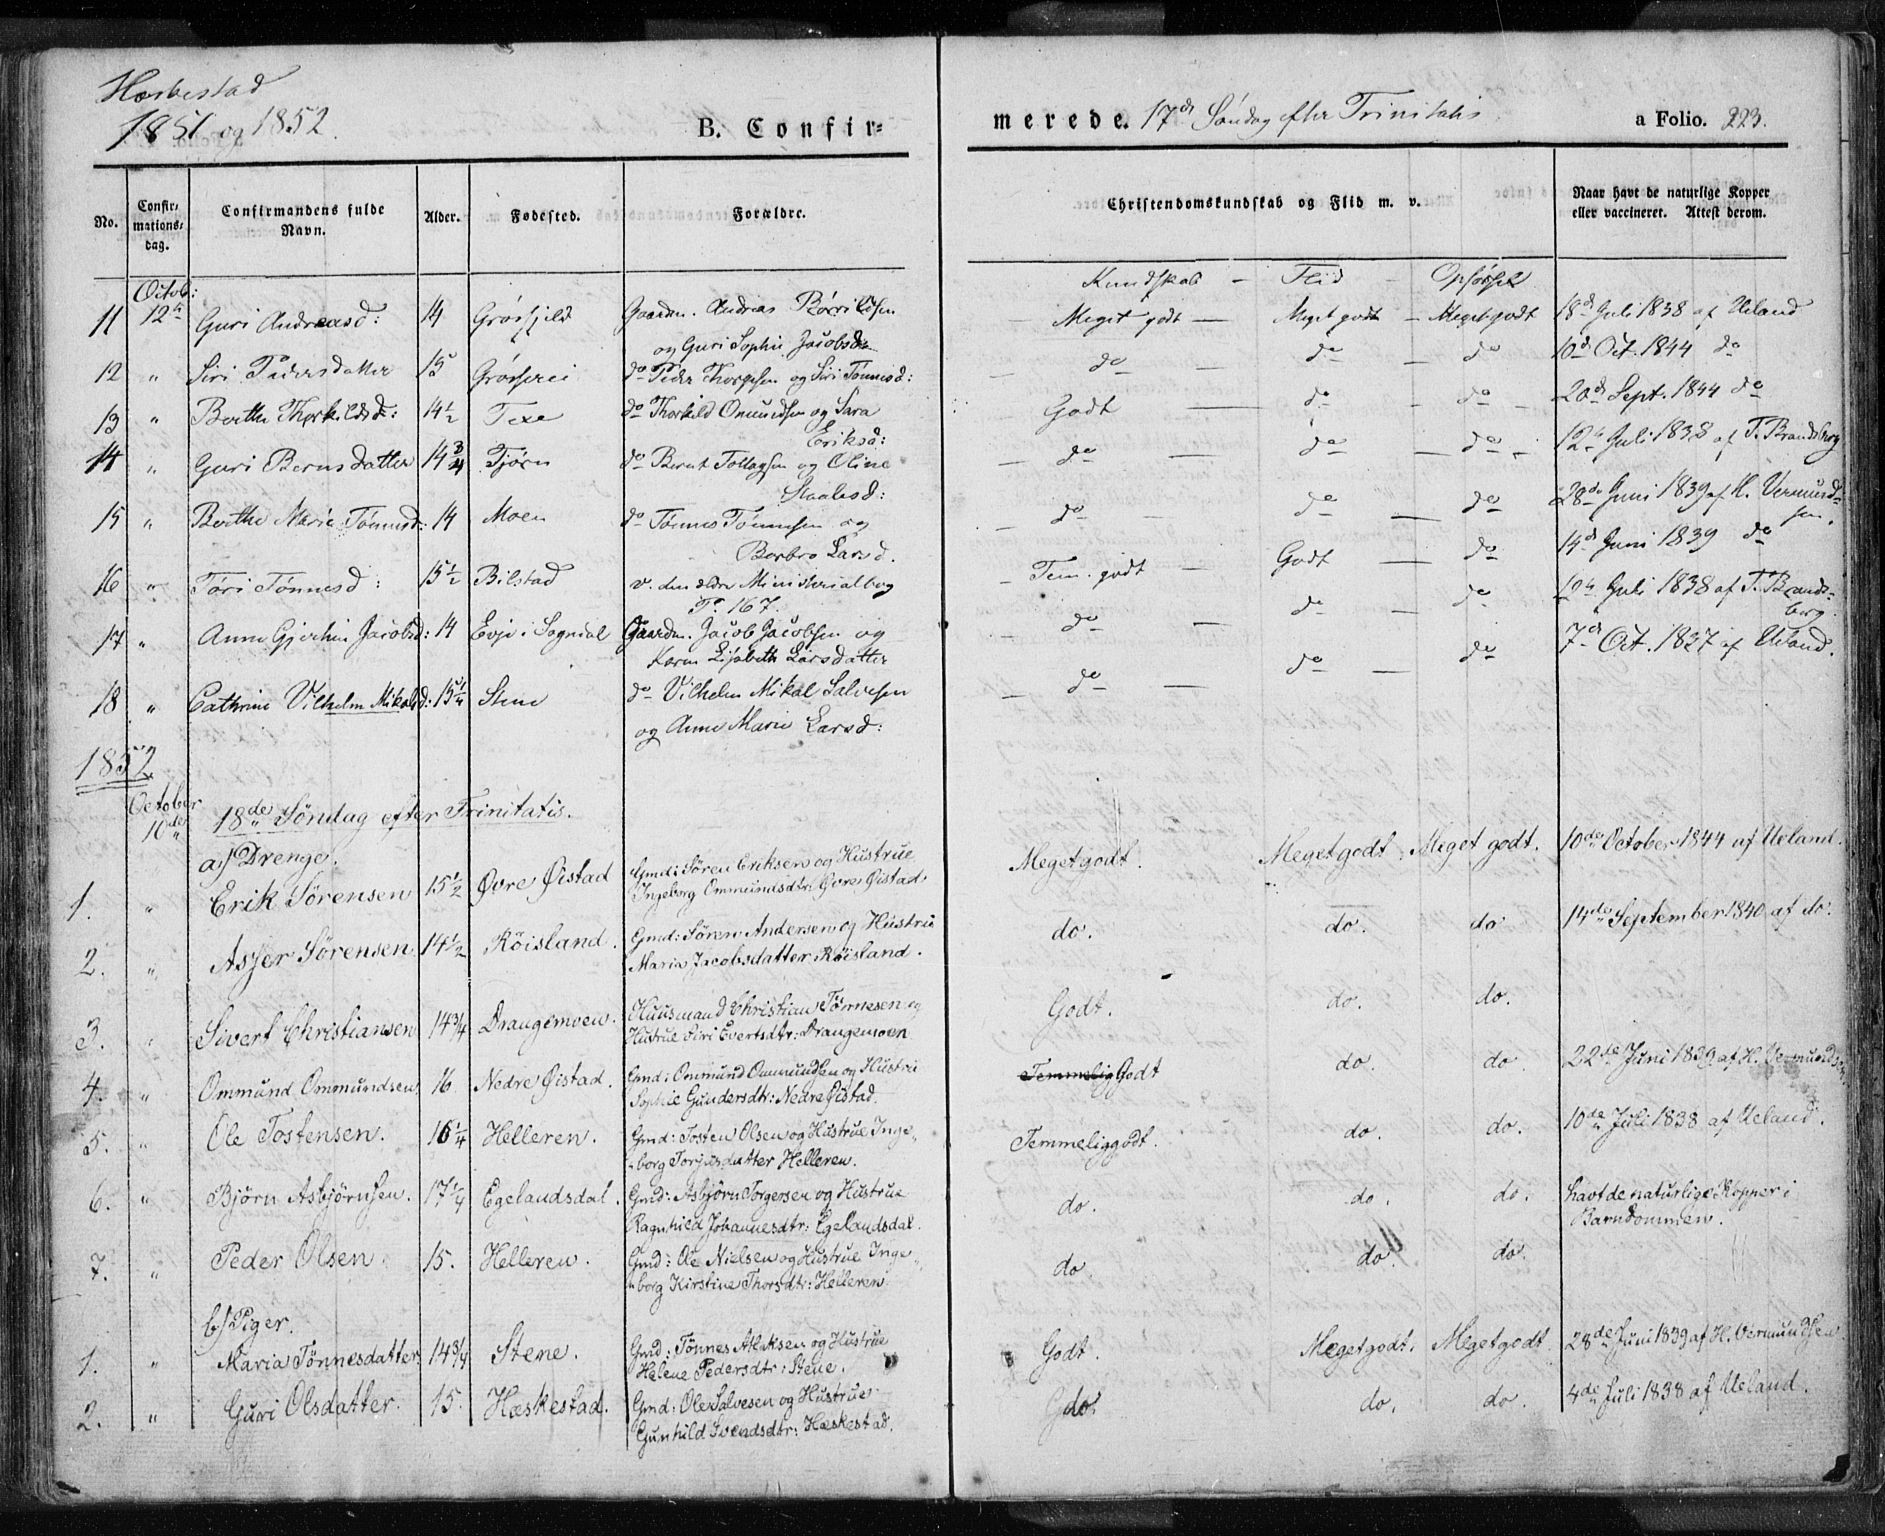 Hæskestad
1851 og 1852.
B. Confir=
merede. 17de Søndag efter Trinitatis
a Folio. 223.
No. Confir=mations=dag. Confirmandens fulde Navn. Alder. Fødested. Forældre. Christendomskundskab og Flid m. v. Naar havt de naturlige Kopper eller vaccineret. Attest derom.
Octob: Kundskab – Flid – Opførsel
11 12te Guri Andreasd: 14 Gaardm. Andreas og Guri Sophie Jacobsd: Meget godt – Meget godt – Meget godt 18de Juli 1838 af Ueland
12 " Siri Pedersdatter 15 do Peder og Siri Tønnesd: do do – do 10de Oct. 1844 do
13 " Berthe Thorkildsd: 14½ Texe do Thorkild Omundsen og Sara Eriksd: Godt – do – do – 20de Sept. 1844 do
14 " Guri Bernsdatter 14¾ Tjørn do Bernt Tollagsen og Oline Staalesd: do – do – do – 12te Juli 1838 af T. Brandsberg
15 " Berthe Marie Tønnesd: 14 Moen do Tønnes Tønnesen og Berbro Larsd. do – do – do 28de Juni 1839 af H. Vermundsen.
16 " Tori Tønnesd: 15½ Bilstad v. den ældre Ministerialbog Fo. 167. Tem. godt – Godt do 14de Juni 1839 do
17 " Anne Gjertine Jacobsd: 14 Evje i Sogndal Gaardm. Jacob Jacobsen og Karen Lisabeth Larsdatter do – do – do 12te Juli 1838 af T. Brandsberg.
18 " Cathrine Vilhelm Mikalsd: 15¼ Stene do Vilhelm Mikal Salvesen og Anne Marie Larsd: do – do – do 7de Oct. 1837 af Ueland.
1852
October 10de 18de Søndag efter Trinitatis.
a/ Drenge.
1. " Erik Sørensen 15½ Øvre Øistad Gmd: Søren Eriksen og Hustrue Ingeborg Ommundsdtr: Øvre Øistad Megetgodt. Megetgodt Meget godt. 10de October 1844 af Ueland.
2. " Asser Sørensen 14½ Röisland. Gmd: Søren Andersen og Hustru Maria Jacobsdatter Röisland. do. do. do 14de September 1840 af do.
3. " Sivert Christiansen 14¾ Drangemoen. Huusmand Christian Tørnesen og Hustrue Siri Evertsdtr: Drangemoen Godt. do. do.
4. " Ommund Ommundsen 16 Nedre Øistad. Gmd: Ommund Ommundsen og Hustru Sophie Gundersdtr: Nedre Øistad. Temmelig Godt do. do. 22de Juni 1839 af H. Vermundsen
5. " Ole Tostensen. 16¼ Helleren. Gmd: Tosten Olsen og Hustrue Inge„ „borg Torjusdatter Helleren. Temmeliggodt. do. do. 10de Juli 1838 af Ueland.
6. " Bjørn Asbjørnsen. 17¼ Egelandsdal. Gmd: Asbjørn Torgersen og Hustrue Ragnhild Johannesdtr: Egelandsdal. do. do. do. havt de naturlige Kopper i Barndommen.
7. " Peder Olsen 15. Helleren. Gmd: Ole Nielsen og Hustrue Inge„ „borg Kirstine Thorsdtr: Helleren. do. do. do.
b/ Piger.
1. " Maria Tønnesdatter 14¾ Stene. Gmd: Tønnes Atlaksen og Hustrue Helene Pedersdtr: Stene. Godt. Megetgodt. Megetgodt 28de Juni 1839 af H. Vermundsen
2. " Guri Olsdatter. 15. Hæskestad. Gmd: Ole Salvesen og Hustrue Gunhild Svendsdtr: Hæskestad. do. do. do. 4de Juli 1838 af Ueland.